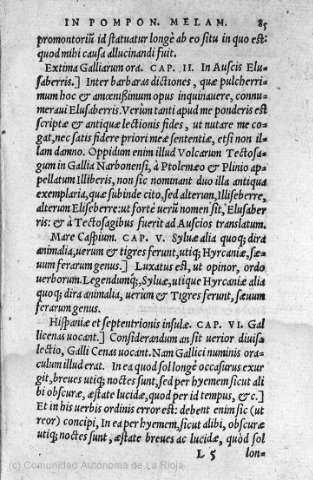 IN POMPON. MELAM. 85
promontoriū id statuatur longè ab eo situ in quo est:
quod mihi causa allucinandi fuit.
Extima Galliarum ora. CAP. II. In Auscis Elu-
saberris.] Inter barbaras dictiones, quæ pulcherri-
mum hoc & amœnißimum opus inquinauere, connu-
meraui Elusaberris. Verùm tanti apud me ponderis est
scriptæ & antiquæ lectionis fides, ut nutare me co-
gat, nec satis fidere priori meæ sententiæ, etsi non il-
lam damno. Oppidum enim illud Volcarum Tectosa-
gum in Gallia Narbonensi, à Ptolemæo & Plinio ap-
pellatum Illiberis, non sic nominant duo illa antiqua
exemplaria, quæ subinde cito, sed alterum, Illiseberre,
alterum Eliseberre: ut fortè uerū nomen sit, Elusaber
ris: & à Tectosagibus fuerit ad Auscios translatum.
Mare Caspium. CAP. V. Syluæ alia quoq; dira
animalia, uerum & tigres ferunt, utiq; Hyrcaniæ, sæ-
uum ferarum genus.] Luxatus est, ut opinor, ordo
uerborum. Legendumq́;, Syluæ, utique Hyrcaniæ alia
quoq; dira animalia, uerùm & Tigres ferunt, sæuum
ferarum genus.
Hispaniæ et septentrionis insulæ. CAP. VI. Gal
licenas uocant.] Considerandum an sit uerior diuisa
lectio, Galli Cenas uocant. Nam Gallici numinis ora-
culum illud erat. In ea quod sol longè occasurus exur
git, breues utiq; noctes sunt, sed per hyemem sicut ali
bi obscuræ, æstate lucidæ, quod per id tempus, & c.]
Et in his uerbis ordinis error est: debent enim sic (ut
reor) concipi, In ea per hyemem, sicut alibi, obscuræ
utiq; noctes sunt, æstate breues ac lucidæ, quòd sol
L 5 lon-
(c) Comunidad Autónoma de La Rioja